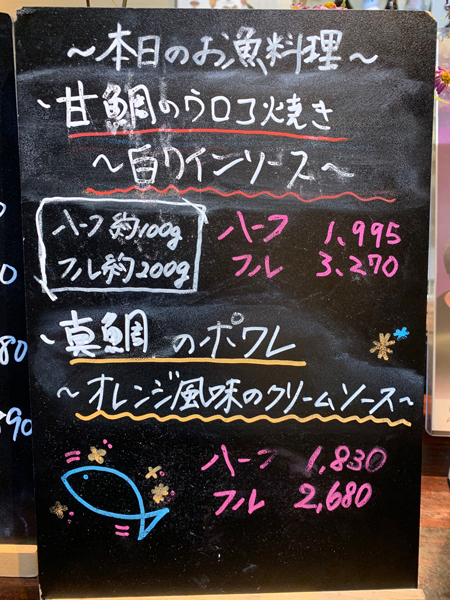 ～本日のお魚料理～
、甘鯛のウロコ焼き
～白ワインソース～
ハーフ 約100g
フル 約200g
ハーフ 1,995
フル 3,270
、真鯛のポワレ
～オレンジ風味のクリームソース～
ハーフ 1,830
フル 2,680
80
90